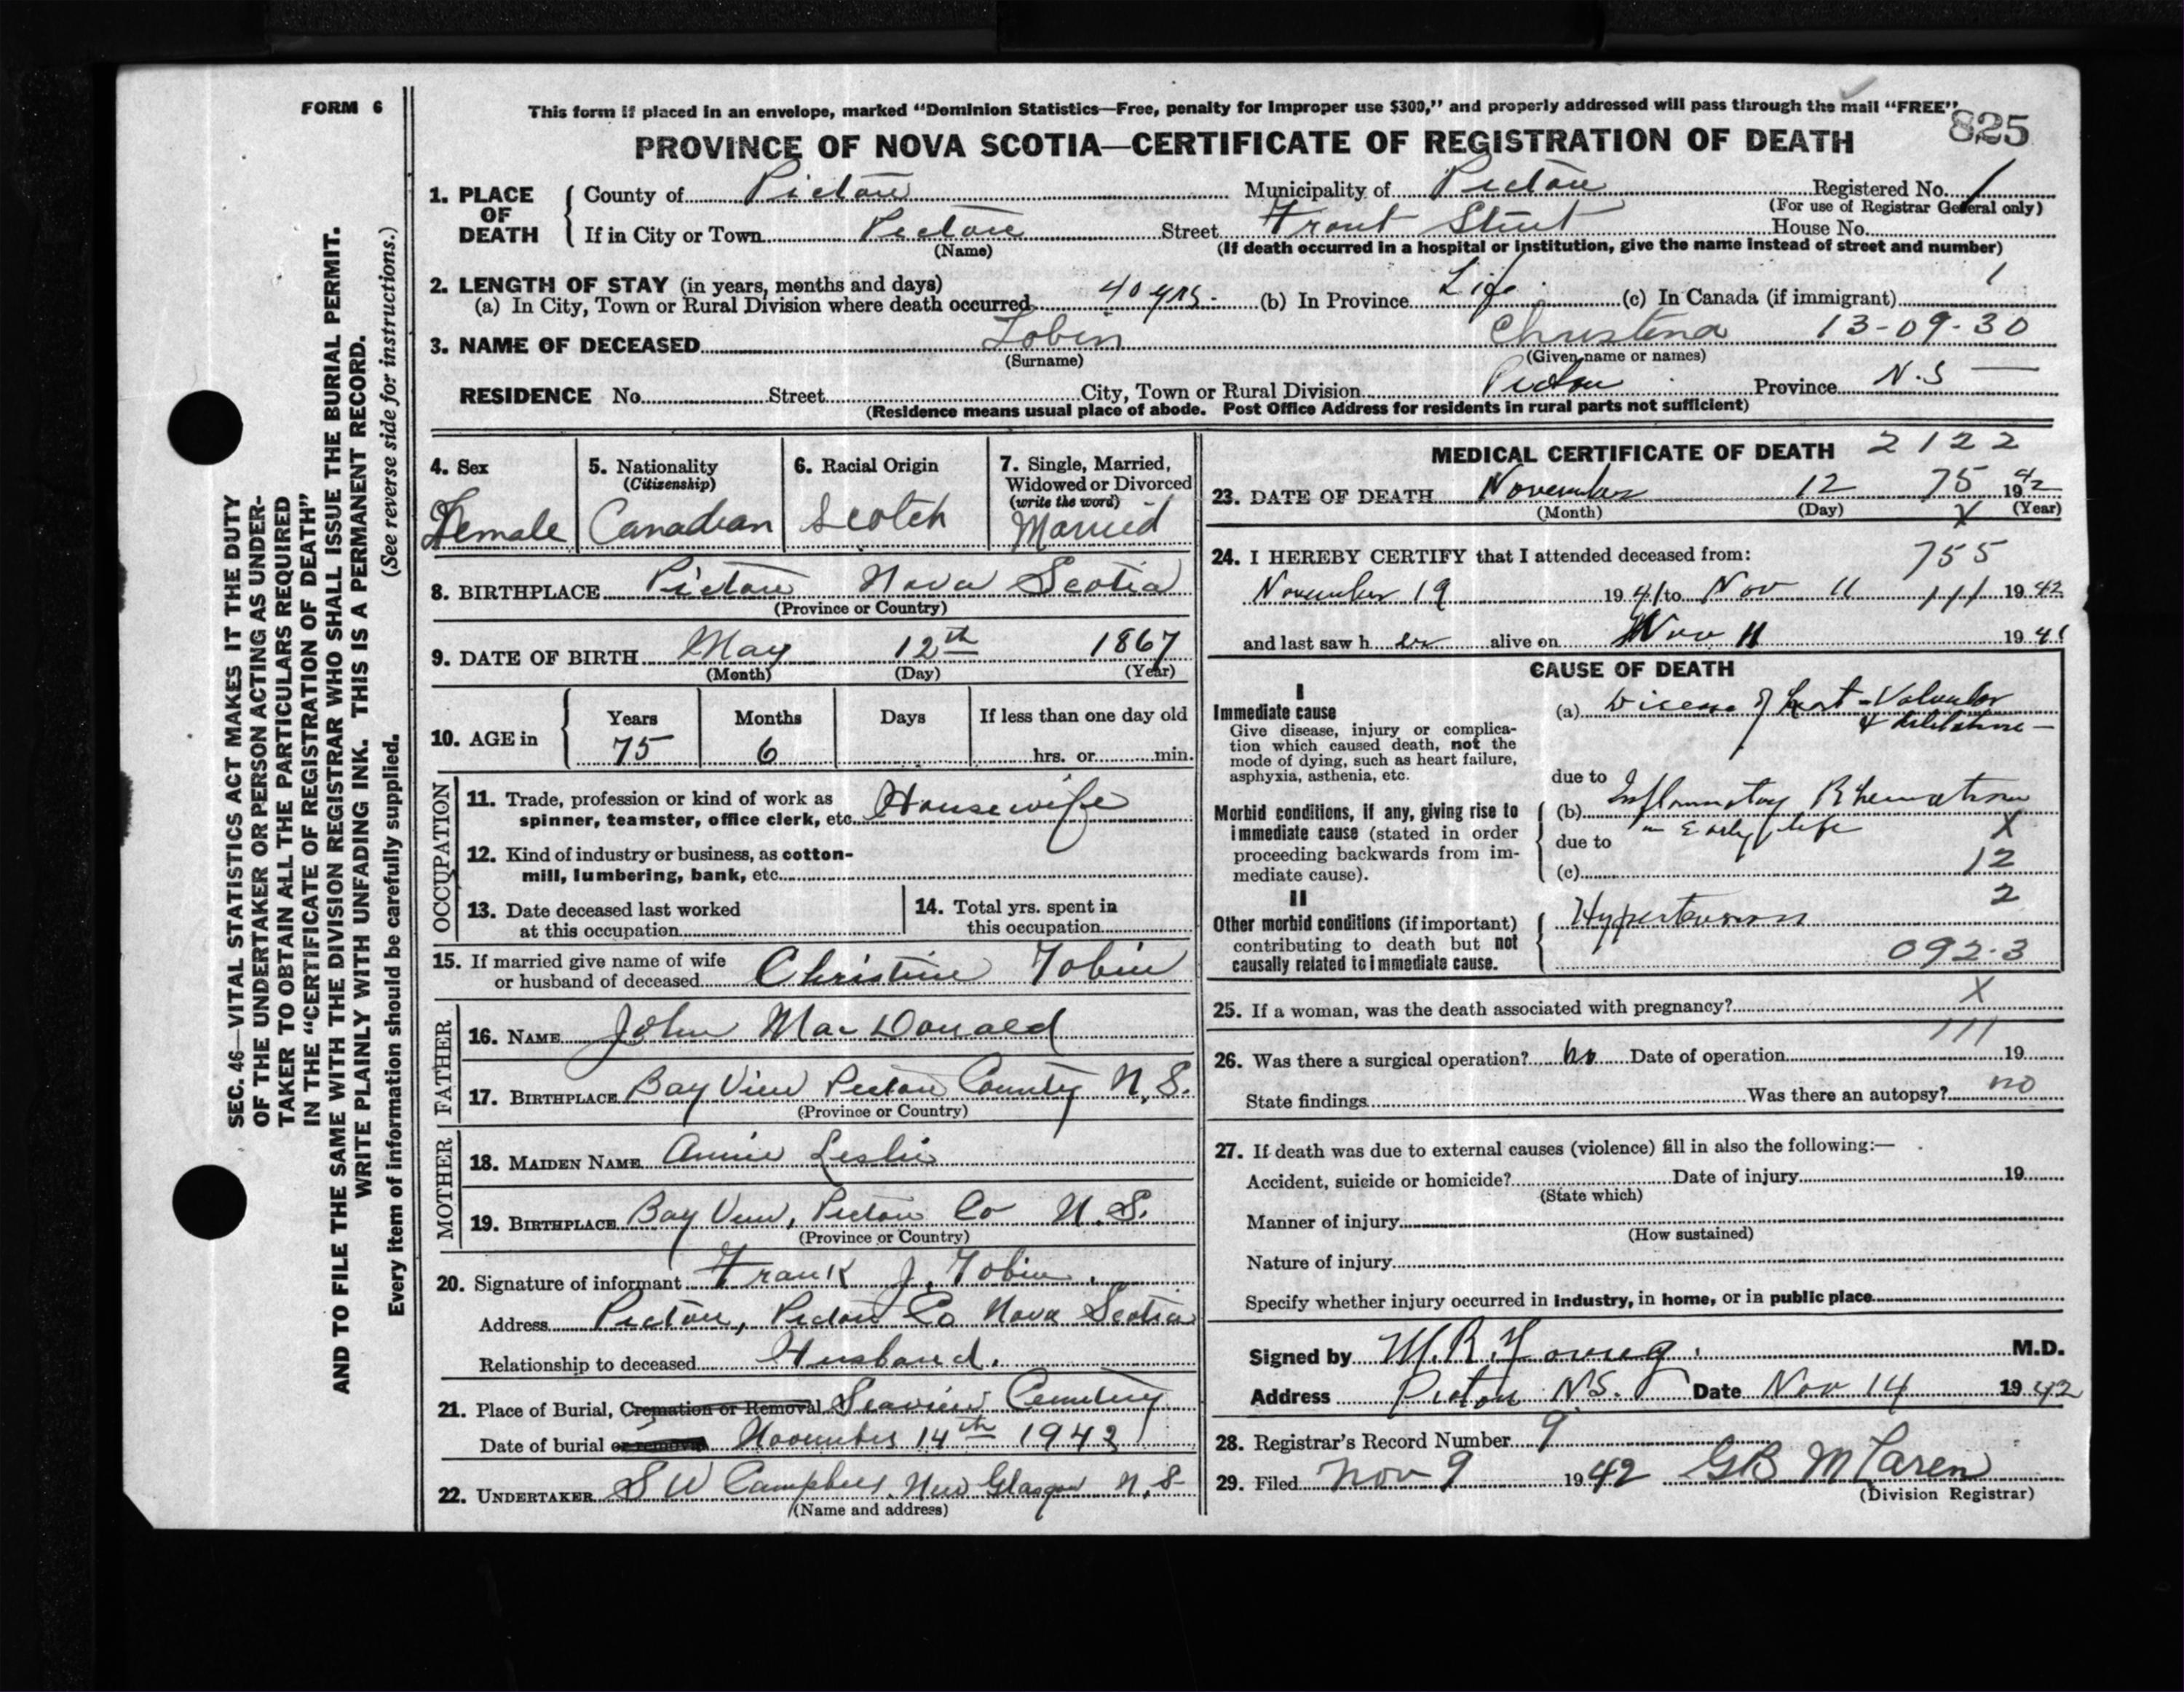 FORM 6
This form if placed in an envelope, marked "Dominion Statistics—Free, penalty for improper use $300," and properly addressed will pass through the mail "FREE"
825
PROVINCE OF NOVA SCOTIA—CERTIFICATE OF REGISTRATION OF DEATH
1. PLACE OF DEATH
County of Pictou Municipality of Pictou Registered No. 1
(For use of Registrar General only)
If in City or Town Pictou Street Front Street House No.
(Name) (If death occurred in a hospital or institution, give the name instead of street and number)
2. LENGTH OF STAY (in years, months and days) 1
(a) In City, Town or Rural Division where death occurred 40 yrs. (b) In Province Life (c) In Canada (if immigrant)
3. NAME OF DECEASED Tobin Christena 13-09-30
(Surname) (Given name or names)
RESIDENCE No. Street City, Town or Rural Division Pictou Province N.S —
(Residence means usual place of abode. Post Office Address for residents in rural parts not sufficient)
4. Sex Female
5. Nationality (Citizenship) Canadian
6. Racial Origin Scotch
7. Single, Married, Widowed or Divorced (write the word) Married
8. BIRTHPLACE Pictou Nova Scotia
(Province or Country)
9. DATE OF BIRTH May 12th 1867
(Month) (Day) (Year)
10. AGE in Years 75 Months 6 Days If less than one day old hrs. or min.
OCCUPATION
11. Trade, profession or kind of work as spinner, teamster, office clerk, etc. Housewife
12. Kind of industry or business, as cotton-mill, lumbering, bank, etc.
13. Date deceased last worked at this occupation
14. Total yrs. spent in this occupation
15. If married give name of wife or husband of deceased Christine Tobin
FATHER
16. NAME John MacDonald
17. BIRTHPLACE Bay View Pictou County N.S.
(Province or Country)
MOTHER
18. MAIDEN NAME Annie Leslie
19. BIRTHPLACE Bay View, Pictou Co N.S.
(Province or Country)
20. Signature of informant Frank J. Tobin.
Address Pictou, Pictou Co Nova Scotia
Relationship to deceased Husband.
21. Place of Burial, Cremation or Removal Seaview Cemetery
Date of burial or removal November 14th 1942
22. UNDERTAKER S W Campbell, New Glasgow N.S
(Name and address)
MEDICAL CERTIFICATE OF DEATH 2122
23. DATE OF DEATH November 12 75 1942
(Month) (Day) X (Year)
24. I HEREBY CERTIFY that I attended deceased from: 755
November 19 1941 to Nov 11 111 1942
and last saw her alive on Nov 11 1941
CAUSE OF DEATH
I
Immediate cause
Give disease, injury or complication which caused death, not the mode of dying, such as heart failure, asphyxia, asthenia, etc.
(a) Disease of heart - Valvular
& dilatation —
due to
Morbid conditions, if any, giving rise to immediate cause (stated in order proceeding backwards from immediate cause).
(b) Inflammatory Rheumatism
due to in Early life X
(c) 12
II 2
Other morbid conditions (if important) contributing to death but not causally related to immediate cause.
Hypertension
092-3
25. If a woman, was the death associated with pregnancy? X
26. Was there a surgical operation? no Date of operation 111 19
State findings Was there an autopsy? no
27. If death was due to external causes (violence) fill in also the following:—
Accident, suicide or homicide? Date of injury 19
(State which)
Manner of injury
(How sustained)
Nature of injury
Specify whether injury occurred in industry, in home, or in public place
Signed by M.R. Young. M.D.
Address Pictou N.S. Date Nov 14 1942
28. Registrar's Record Number 9
29. Filed Nov 9 1942 GB McLaren
(Division Registrar)
SEC. 46—VITAL STATISTICS ACT MAKES IT THE DUTY
OF THE UNDERTAKER OR PERSON ACTING AS UNDER-
TAKER TO OBTAIN ALL THE PARTICULARS REQUIRED
IN THE "CERTIFICATE OF REGISTRATION OF DEATH"
AND TO FILE THE SAME WITH THE DIVISION REGISTRAR WHO SHALL ISSUE THE BURIAL PERMIT.
WRITE PLAINLY WITH UNFADING INK. THIS IS A PERMANENT RECORD.
(See reverse side for instructions.)
Every item of information should be carefully supplied.